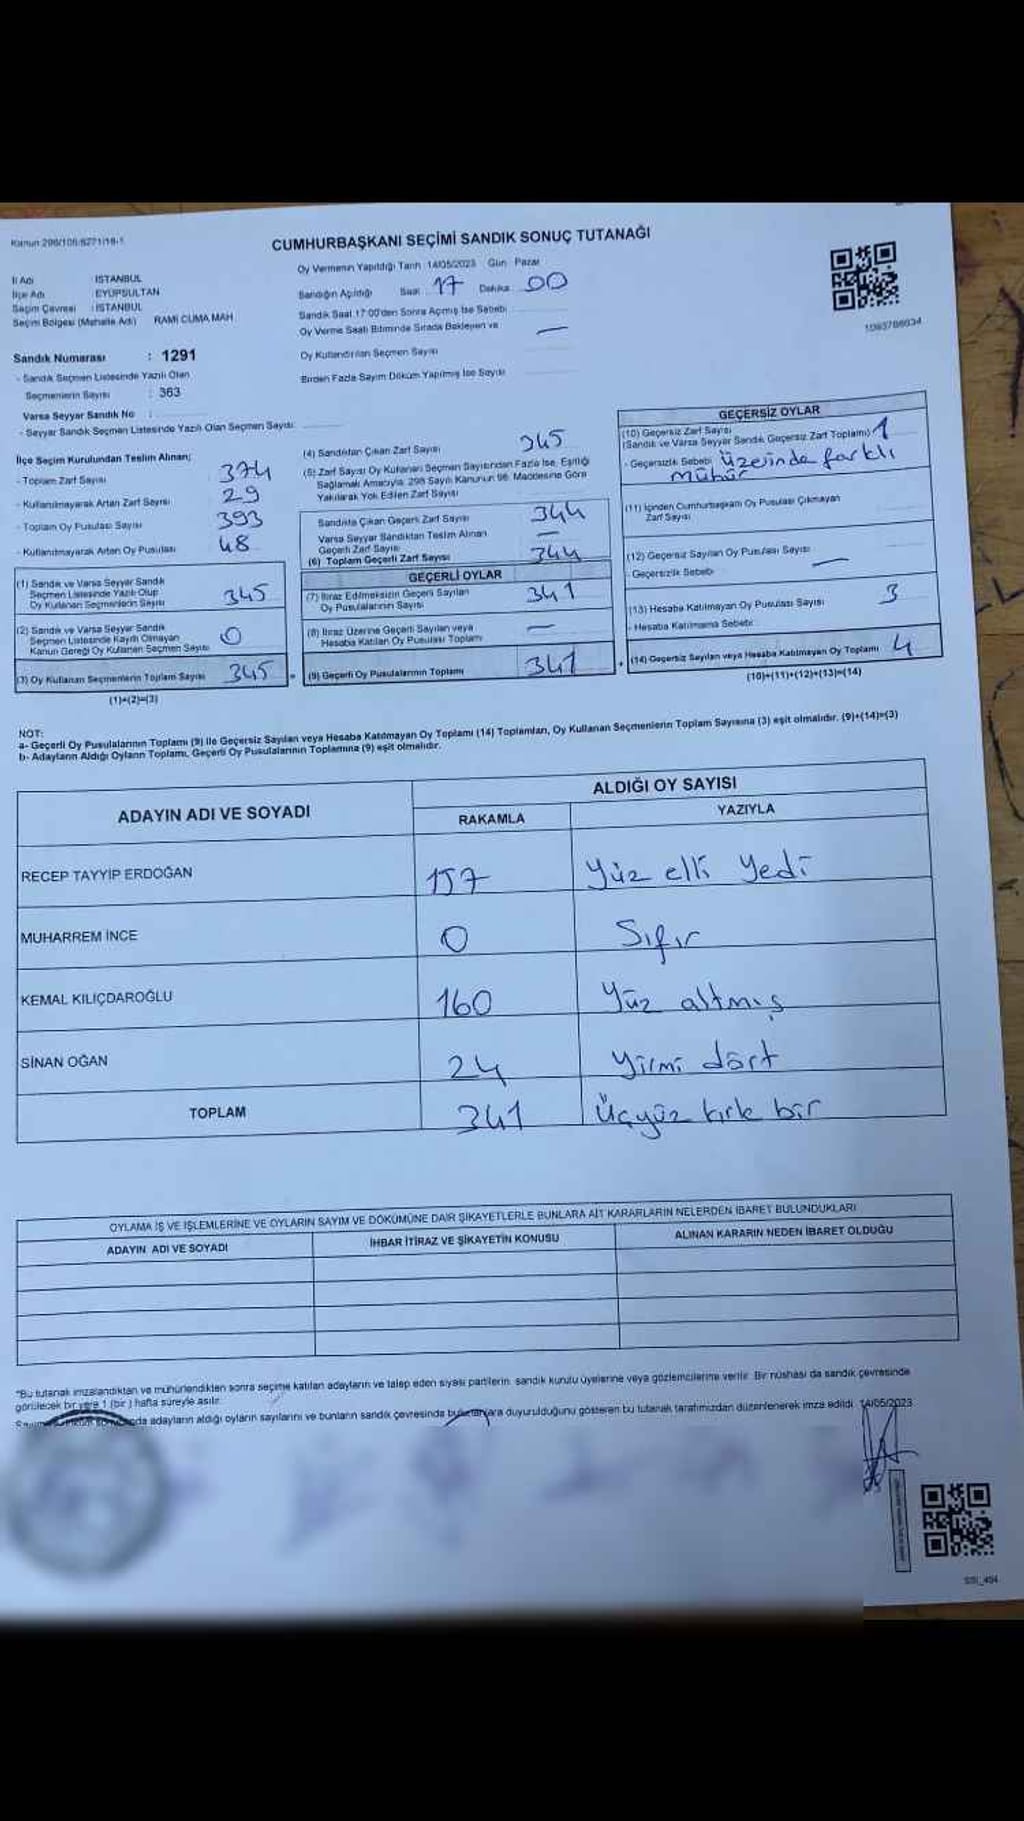 Kanun 298/106-6271/18-1
CUMHURBAŞKANI SEÇİMİ SANDIK SONUÇ TUTANAĞI
İl Adı : İSTANBUL
İlçe Adı : EYÜPSULTAN
Seçim Çevresi : İSTANBUL
Seçim Bölgesi (Mahalle Adı) RAMİ CUMA MAH.
Sandık Numarası : 1291
- Sandık Seçmen Listesinde Yazılı Olan
Seçmenlerin Sayısı : 363
Varsa Seyyar Sandık No :
- Seyyar Sandık Seçmen Listesinde Yazılı Olan Seçmen Sayısı:
Oy Vermenin Yapıldığı Tarih 14/05/2023 Gün Pazar
Sandığın Açıldığı Saat 17 Dakika 00
Sandık Saat 17:00'den Sonra Açılmış İse Sebebi
Oy Verme Saati Bitiminde Sırada Bekleyen ve —
Oy Kullandırılan Seçmen Sayısı
Birden Fazla Sayım Döküm Yapılmış İse Sayısı
1083786634
İlçe Seçim Kurulundan Teslim Alınan;
- Toplam Zarf Sayısı 374
- Kullanılmayarak Artan Zarf Sayısı 29
- Toplam Oy Pusulası Sayısı 393
- Kullanılmayarak Artan Oy Pusulası 48
(1) Sandık ve Varsa Seyyar Sandık
Seçmen Listesinde Yazılı Olup
Oy Kullanan Seçmenlerin Sayısı 345
(2) Sandık ve Varsa Seyyar Sandık
Seçmen Listesinde Kayıtlı Olmayan
Kanun Gereği Oy Kullanan Seçmen Sayısı 0
(3) Oy Kullanan Seçmenlerin Toplam Sayısı 345 =
(1)+(2)=(3)
(4) Sandıktan Çıkan Zarf Sayısı 345
(5) Zarf Sayısı Oy Kullanan Seçmen Sayısından Fazla İse, Eşitliği
Sağlamak Amacıyla, 298 Sayılı Kanunun 98. Maddesine Göre
Yakılarak Yok Edilen Zarf Sayısı
Sandıkta Çıkan Geçerli Zarf Sayısı 344
Varsa Seyyar Sandıktan Teslim Alınan
Geçerli Zarf Sayısı —
(6) Toplam Geçerli Zarf Sayısı 344
GEÇERLİ OYLAR
(7) İtiraz Edilmeksizin Geçerli Sayılan
Oy Pusulalarının Sayısı 341
(8) İtiraz Üzerine Geçerli Sayılan veya
Hesaba Katılan Oy Pusulası Toplamı —
(9) Geçerli Oy Pusulalarının Toplamı 341 +
GEÇERSİZ OYLAR
(10) Geçersiz Zarf Sayısı
(Sandık ve Varsa Seyyar Sandık Geçersiz Zarf Toplamı) 1
- Geçersizlik Sebebi Üzerinde farklı
mühür
(11) İçinden Cumhurbaşkanı Oy Pusulası Çıkmayan
Zarf Sayısı
(12) Geçersiz Sayılan Oy Pusulası Sayısı —
- Geçersizlik Sebebi
(13) Hesaba Katılmayan Oy Pusulası Sayısı 3
- Hesaba Katılmama Sebebi
(14) Geçersiz Sayılan veya Hesaba Katılmayan Oy Toplamı 4
(10)+(11)+(12)+(13)=(14)
NOT:
a- Geçerli Oy Pusulalarının Toplamı (9) ile Geçersiz Sayılan veya Hesaba Katılmayan Oy Toplamı (14) Toplamları, Oy Kullanan Seçmenlerin Toplam Sayısına (3) eşit olmalıdır. (9)+(14)=(3)
b- Adayların Aldığı Oyların Toplamı, Geçerli Oy Pusulalarının Toplamına (9) eşit olmalıdır.
ADAYIN ADI VE SOYADI
ALDIĞI OY SAYISI
RAKAMLA YAZIYLA
RECEP TAYYİP ERDOĞAN 157 Yüz elli yedi
MUHARREM İNCE 0 Sıfır
KEMAL KILIÇDAROĞLU 160 Yüz altmış
SİNAN OĞAN 24 Yirmi dört
TOPLAM 341 Üçyüz kırk bir
OYLAMA İŞ VE İŞLEMLERİNE VE OYLARIN SAYIM VE DÖKÜMÜNE DAİR ŞİKAYETLERLE BUNLARA AİT KARARLARIN NELERDEN İBARET BULUNDUKLARI
ADAYIN ADI VE SOYADI İHBAR İTİRAZ VE ŞİKAYETİN KONUSU ALINAN KARARIN NEDEN İBARET OLDUĞU
"Bu tutanak imzalandıktan ve mühürlendikten sonra seçime katılan adayların ve talep eden siyasi partilerin, sandık kurulu üyelerine veya gözlemcilerine verilir. Bir nüshası da sandık çevresinde
görülecek bir yere 1 (bir) hafta süreyle asılır.
adayların aldığı oyların sayılarını ve bunların sandık çevresinde bulunanlara duyurulduğunu gösteren bu tutanak tarafımızdan düzenlenerek imza edildi. 14/05/2023
SSI_404